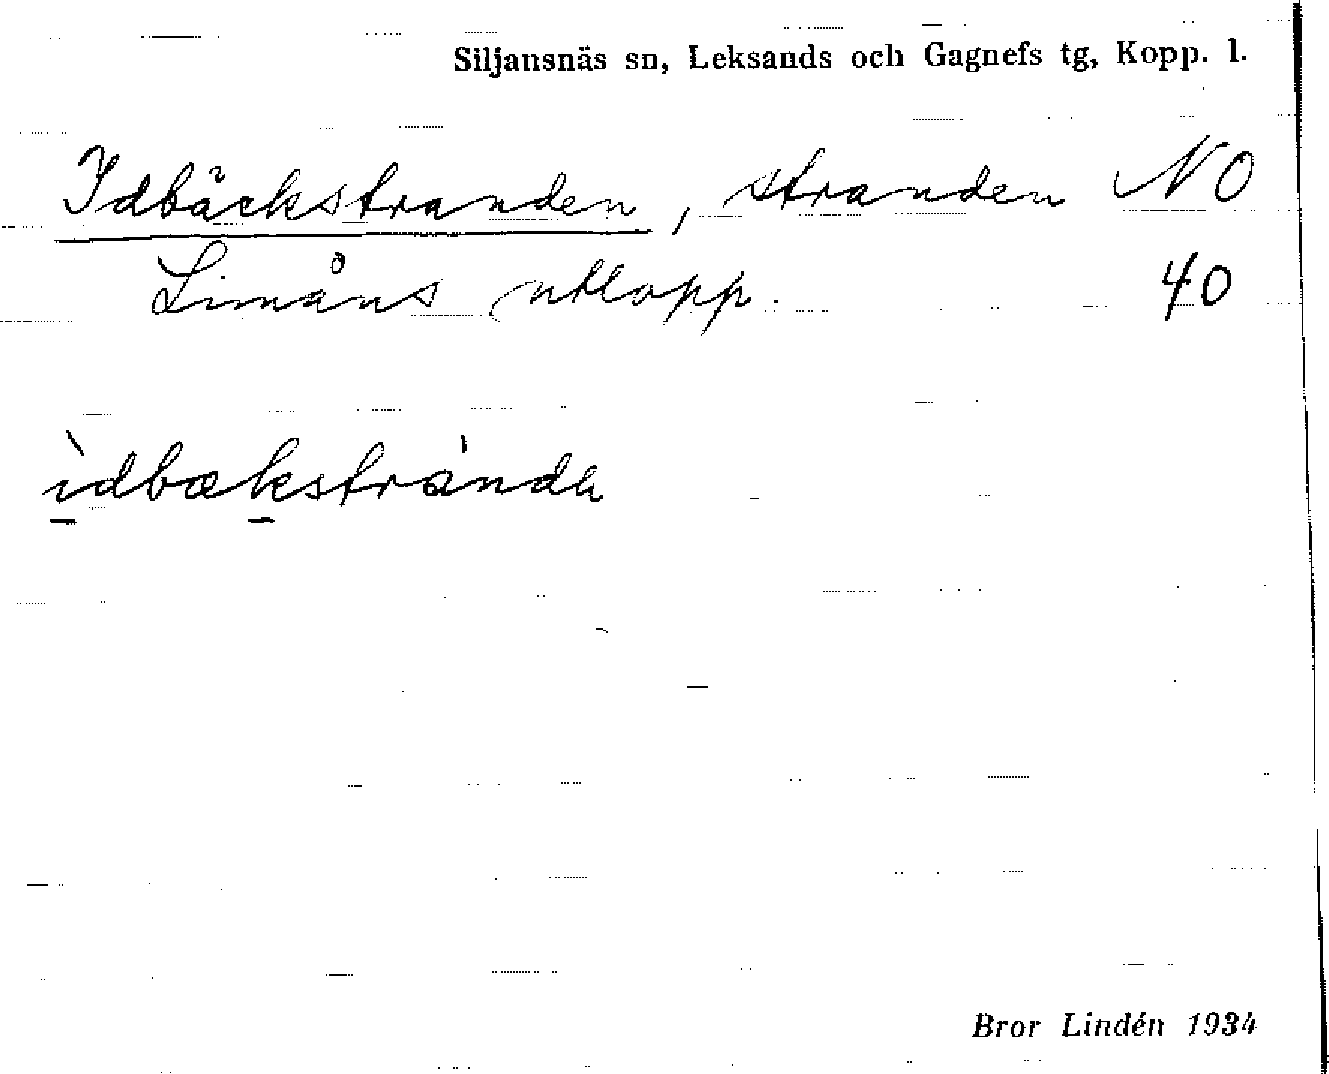 Siljansnäs sn, Leksands och Gagnefs tg, Kopp. l.
Idbäckstranden, stranden NO
Limåns utlopp. 40
ìdbækstrándạ
Bror Lindén 1934